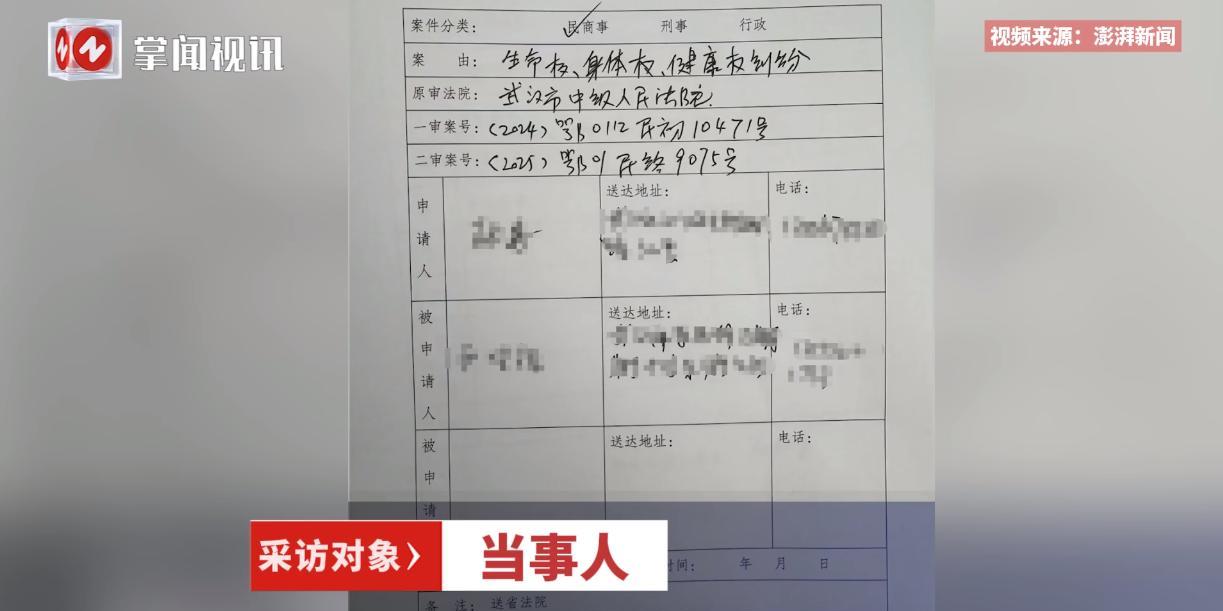 掌闻视讯
视频来源：澎湃新闻
案件分类： 民商事 刑事 行政
案 由： 生命权、身体权、健康权纠纷
原审法院： 武汉市中级人民法院
一审案号：（2024）鄂0112民初10471号
二审案号：（2025）鄂01民终9075号
申请人
送达地址：
电话：
被申请人
送达地址：
电话：
被申请
送达地址：
电话：
采访对象
当事人
时间： 年 月 日
备 注： 送省法院